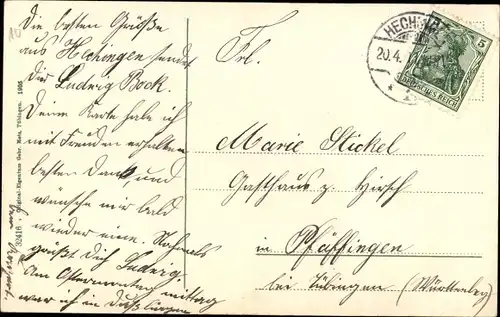 Die besten Grüße
aus Hechingen sendet
Dir Ludwig Bock.
Deine Karte habe ich
mit Freuden erhalten
besten Dank, und
wünsche mir bald
wieder eine. Nochmals
grüßt Dich Ludwig
Am Ostermontag mittag
war ich in
32416 Original-Eigentum Gebr. Metz, Tübingen. 1905
HECHINGEN
20.4.
5
DEUTSCHES REICH
Frl.
Marie Stickel
Gasthaus z. Hirsch
in Pfäffingen
bei Tübingen (Württenbg)